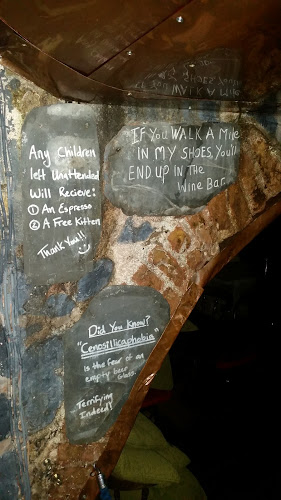 Any Children
left Unattended
Will Recieve:
① An Espresso
② A Free Kitten
Thank You!!
IF YOU WALK A Mile
IN MY SHOES, YOU'll
END UP IN THE
Wine Bar.
Did You Know?
"Cenosillicaphobia"
is the fear of an
empty beer
glass.
Terrifying
Indeed!